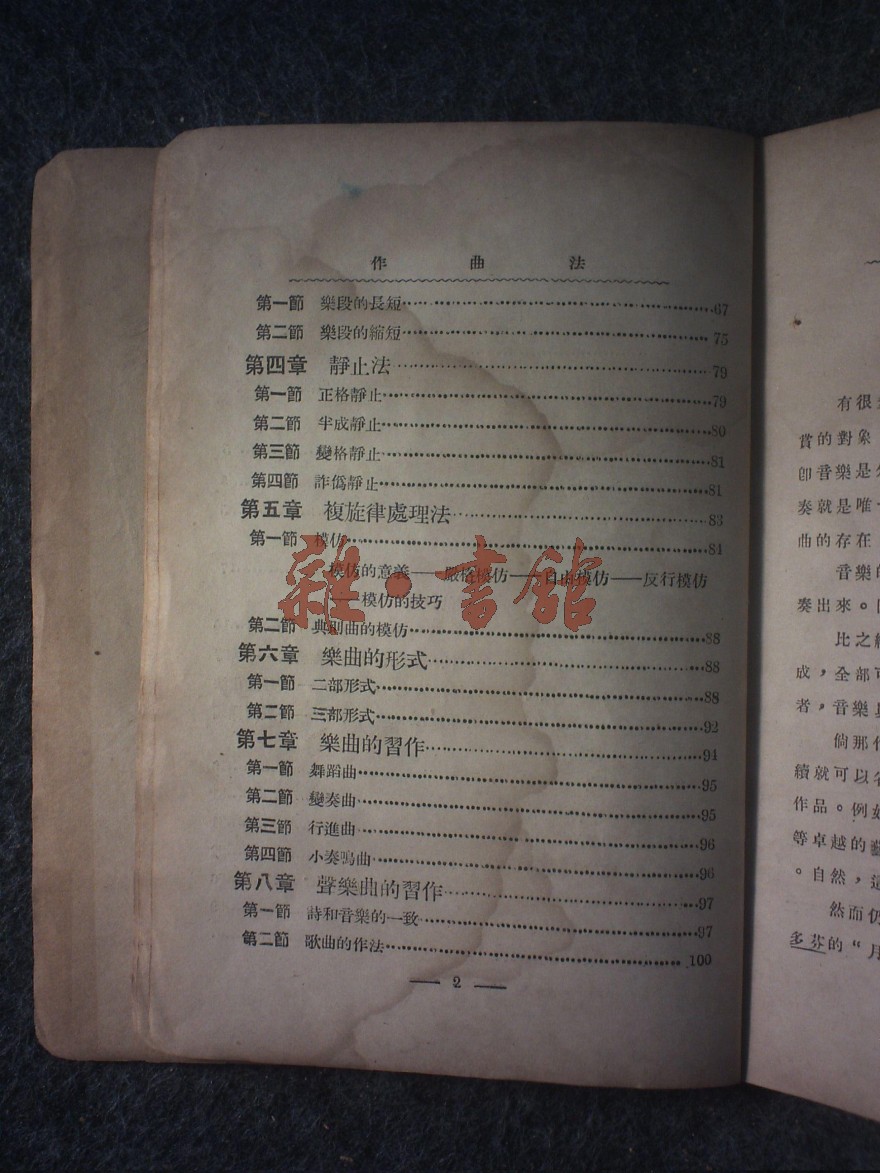 作曲法
第一節 樂段的長短 67
第二節 樂段的縮短 75
第四章 靜止法 79
第一節 正格靜止 79
第二節 半成靜止 80
第三節 變格靜止 81
第四節 詐僞靜止 81
第五章 複旋律處理法 83
第一節 模仿 84
模仿的意義——嚴格模仿——自由模仿——反行模仿
——模仿的技巧
第二節 典則曲的模仿 88
第六章 樂曲的形式 88
第一節 二部形式 88
第二節 三部形式 92
第七章 樂曲的習作 94
第一節 舞蹈曲 95
第二節 變奏曲 95
第三節 行進曲 96
第四節 小奏鳴曲 96
第八章 聲樂曲的習作 97
第一節 詩和音樂的一致 97
第二節 歌曲的作法 100
— 2 —
雜·書館
有很
賞的對象
卽音樂是
奏就是唯
曲的存在
音樂的
奏出來。
比之
成，全部可
者，音樂
倘那
續就可以
作品。例如
等卓越的
。自然，這
然而仍
多芬的“月